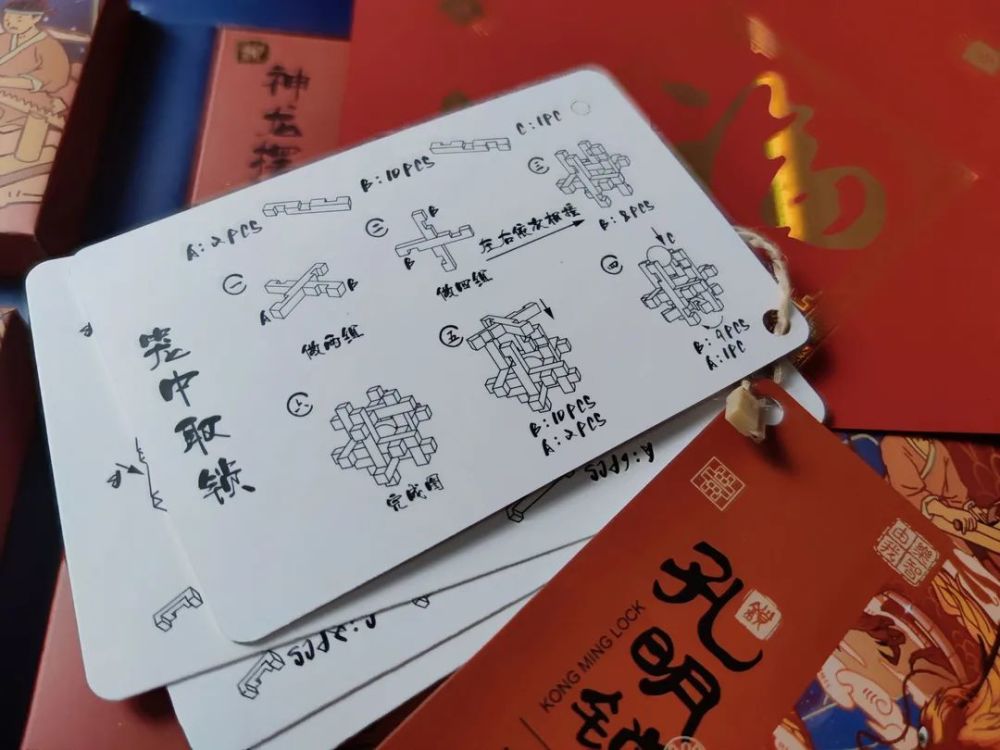 神龙摆
福
C:1PC
B:10PCS
A:2PCS
一
A
B
做两组
二
B
B
做四组
左右依次拼接
三
B:8PCS
四
C
B:9PCS
A:1PC
五
B:10PCS
A:2PCS
六
完成图
笼中取锁
A:6PCS
C:2PCS
孔明锁
KONG MING LOCK